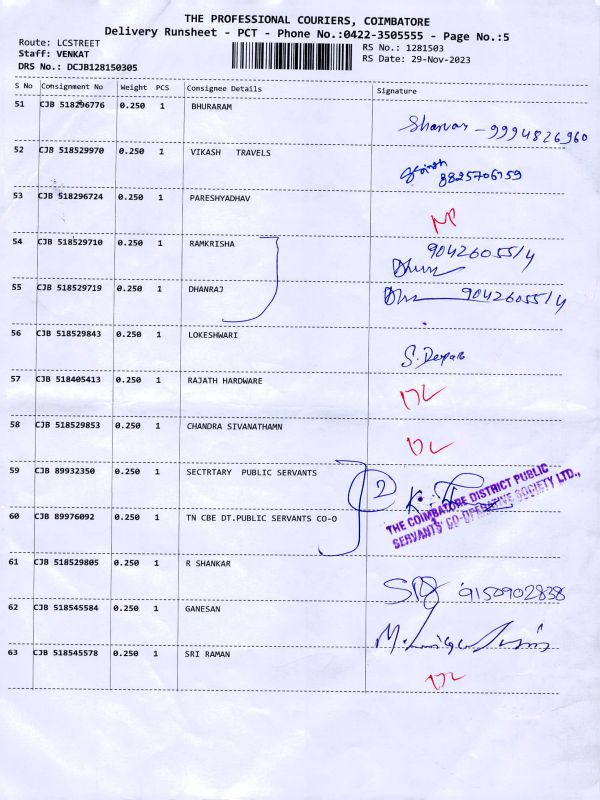 THE PROFESSIONAL COURIERS, COIMBATORE
Delivery Runsheet - PCT - Phone No.:0422-3505555 - Page No.:5
Route: LCSTREET
Staff: VENKAT
DRS No.: DCJB128150305
RS No.: 1281503
RS Date: 29-Nov-2023
S No Consignment No Weight PCS Consignee Details Signature
51 CJB 518296776 0.250 1 BHURARAM - 9994826960
52 CJB 518529970 0.250 1 VIKASH TRAVELS
8825706759
53 CJB 518296724 0.250 1 PARESHYADHAV
54 CJB 518529710 0.250 1 RAMKRISHA 9042605514
55 CJB 518529719 0.250 1 DHANRAJ 9042605514
56 CJB 518529843 0.250 1 LOKESHWARI
57 CJB 518405413 0.250 1 RAJATH HARDWARE DL
58 CJB 518529853 0.250 1 CHANDRA SIVANATHAMN DL
59 CJB 89932350 0.250 1 SECTRTARY PUBLIC SERVANTS 2
THE COIMBATORE DISTRICT PUBLIC
SERVANTS' CO-OPERATIVE SOCIETY LTD.,
60 CJB 89976092 0.250 1 TN CBE DT.PUBLIC SERVANTS CO-O
61 CJB 518529805 0.250 1 R SHANKAR 9150902838
62 CJB 518545584 0.250 1 GANESAN
63 CJB 518545578 0.250 1 SRI RAMAN DL